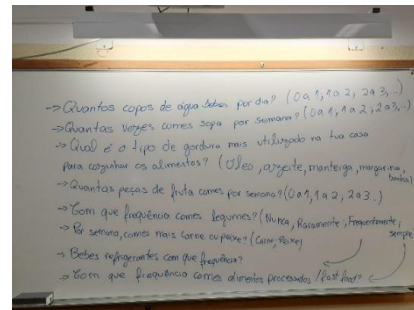 → Quantos copos de água bebes por dia? (0 a 1, 1 a 2, 2 a 3, ..)
→ Quantas vezes comes sopa por semana? (0 a 1, 1 a 2, 2 a 3, ..)
→ Qual é o tipo de gordura mais utilizado na tua casa
para cozinhar os alimentos? (Óleo, azeite, manteiga, margarina,
banha)
→ Quantas peças de fruta comes por semana? (0 a 1, 1 a 2, 2 a 3 ..)
→ Com que frequência comes legumes? (Nunca, Raramente, Frequentemente,
sempre)
→ Por semana, comes mais carne ou peixe? (Carne, Peixe)
→ Bebes refrigerantes com que frequência?
→ Com que frequência comes alimentos processados / fast food?